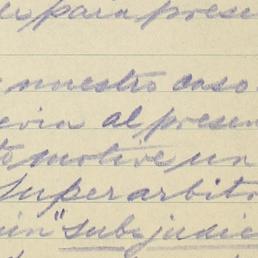 para prese
nuestro caso.
al presen
motive un
Superarbitr
"sub-judice